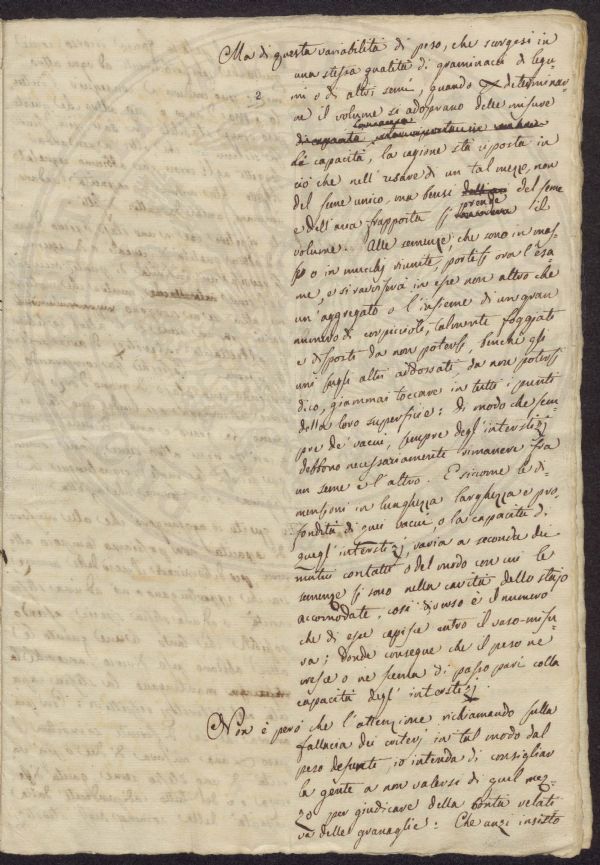 Ma di questa variabilità di peso, che scorgesi in
una stessa qualità di graminacei di legu-
mi o di altri semi, quando determinar-
ne il volume si adoprano delle misure
2
di capacità, la cagione sta riposta in
ciò che nell'usare di un tal mezzo, non
del seme unico, ma bensì del seme
e dell'aria frapposta si prende il
volume. Alle semenze che sono in mas-
sa o in mucchj riunite, portisi ora l'esa-
me, e si ravviserà in esse non altro che
un'aggregato o l'insieme di un gran
numero di corpiccioli, talmente foggiati
e disposti da non potersi, benchè gli
uni sugli altri addossati, da non potersi
dico, giammai toccare in tutti i punti
della loro superficie: di modo che sem-
pre de' vacui, sempre degl'interstizj
debbono necessariamente rimanere fra
un seme e l'altro. E siccome le di-
mensioni in lunghezza larghezza e pro-
fondità di quei vacui, o la capacità di
quegl'interstizj, varia a seconda dei
mutui contatti o del modo con cui le
semenze si sono nella cavità dello stajo
accomodate, così diverso è il numero
che di esse capisce entro il vaso-misu-
ra; donde consegue che il peso ne
cresce o ne scema di passo pari colla
capacità degl'interstizj.
Non è però che l'attenzione richiamando sulla
fallacia dei criterj in tal modo dal
peso desunte, io intenda di consigliar
la gente a non valersi di quel mez-
zo per giudicare della bontà relati-
va delle granaglie: Che anzi insisto